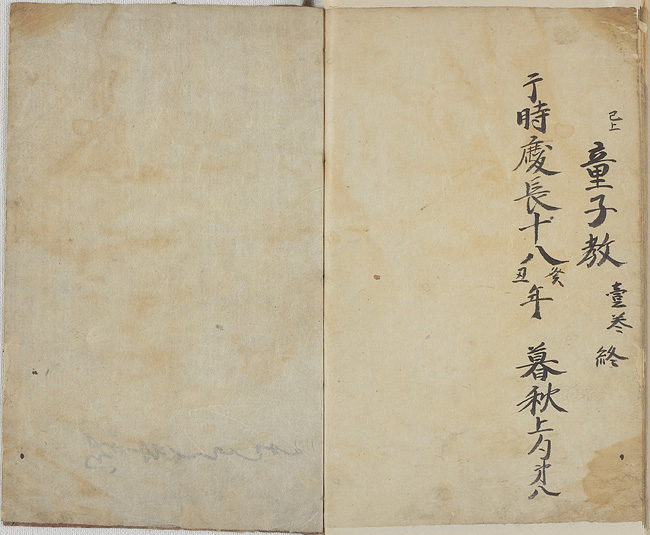 已上 童子教 壹巻 終
于時慶長十八癸丑年 暮秋上旬第八